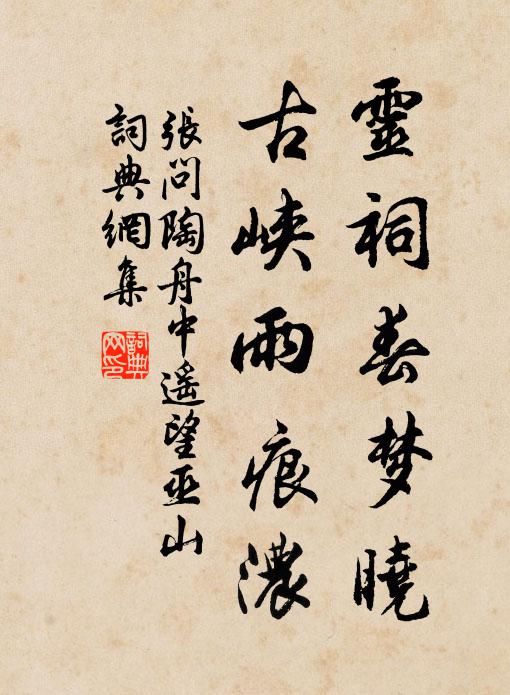 靈祠春梦曉
古峽雨痕濃
張问陶舟中遥望巫山
詞典網集
詞典网印